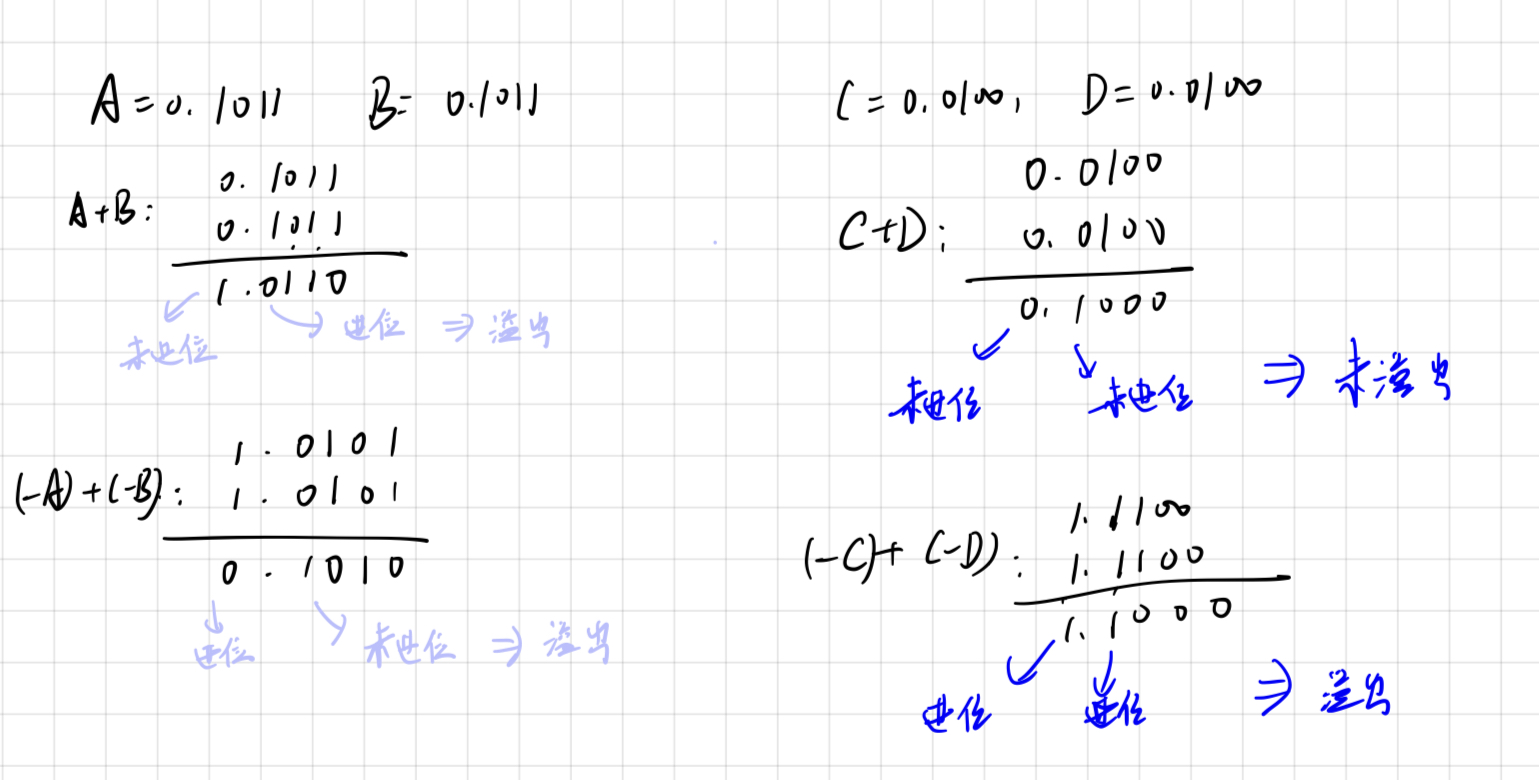 A = 0.1011 B = 0.1011
A+B:
0.1011
0.1011
1.0110
未进位
进位 ⇒ 溢出
(-A)+(-B):
1.0101
1.0101
0.1010
进位
未进位 ⇒ 溢出
C = 0.0100, D = 0.0100
C+D:
0.0100
0.0100
0.1000
未进位
未进位 ⇒ 未溢出
(-C)+(-D):
1.1100
1.1100
1.1000
进位
进位 ⇒ 溢出